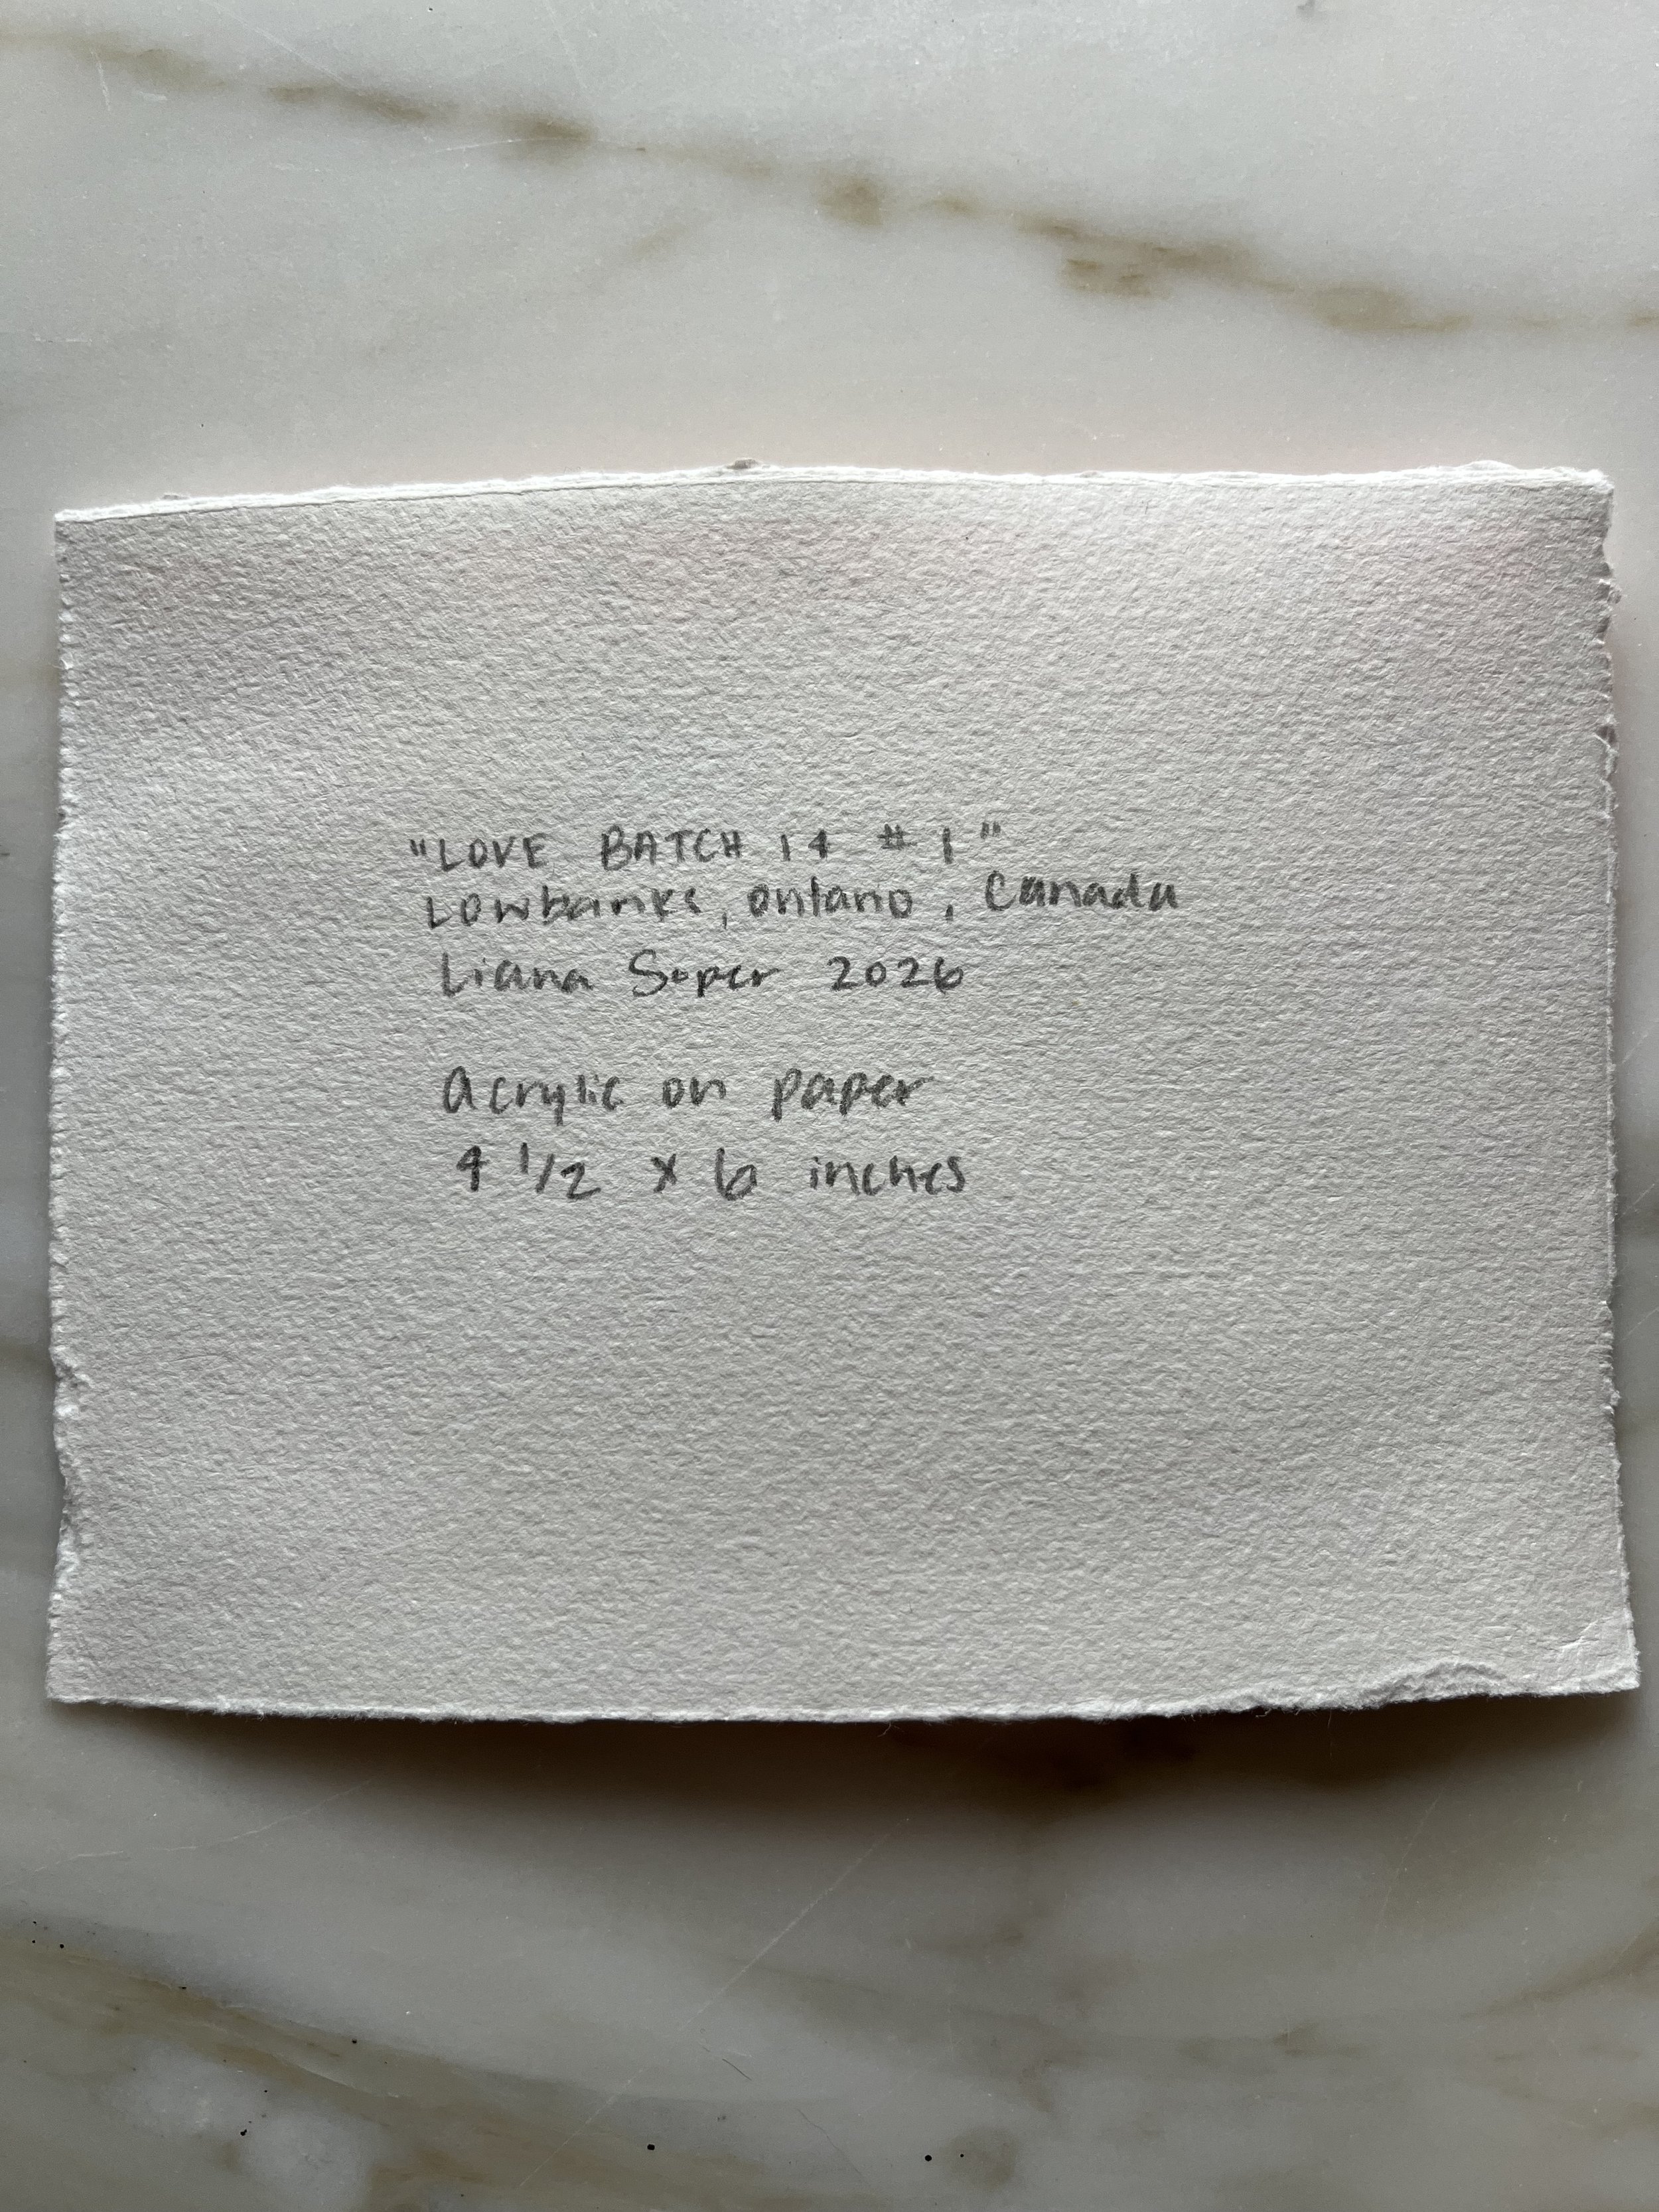 "LOVE BATCH 14 #1"
Lowbanks, Ontario, Canada
Liana Soper 2026
Acrylic on paper
4 1/2 x 6 inches